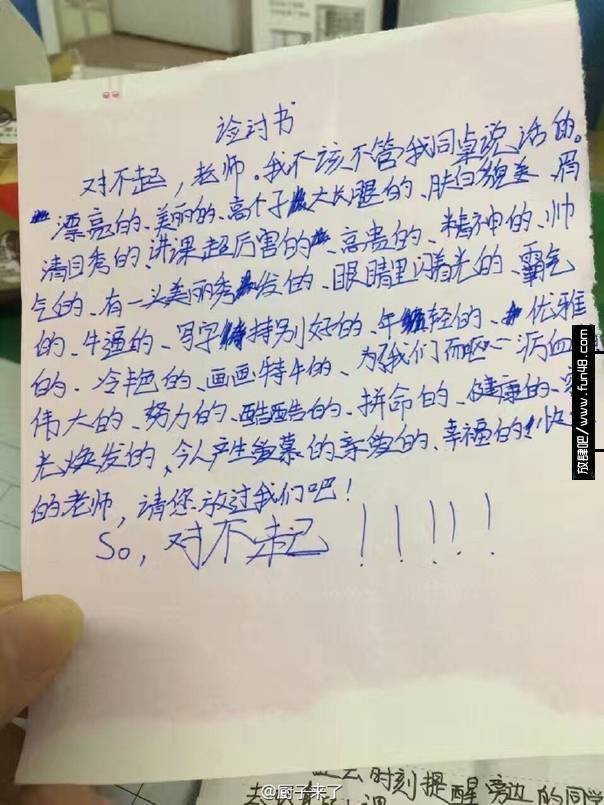 检讨书
对不起，老师。我不该不管我同桌说话的。
漂亮的、美丽的、高个子大长腿的、肤白貌美、眉
清目秀的、讲课超厉害的、高贵的、精神的、帅
气的、有一头美丽秀发的、眼睛里闪着光的、霸气
的、牛逼的、写字特别好的、年轻的、优雅
的、冷艳的、画画特牛的、为了我们而呕心沥血
伟大的、努力的、酷酷的、拼命的、健康的、容
光焕发的、令人产生羡慕的亲爱的、幸福的快
的老师，请您放过我们吧！
So，对不起！！！！！
放肆吧/www.fun48.com
@厨子来了
时刻提醒旁边的同学